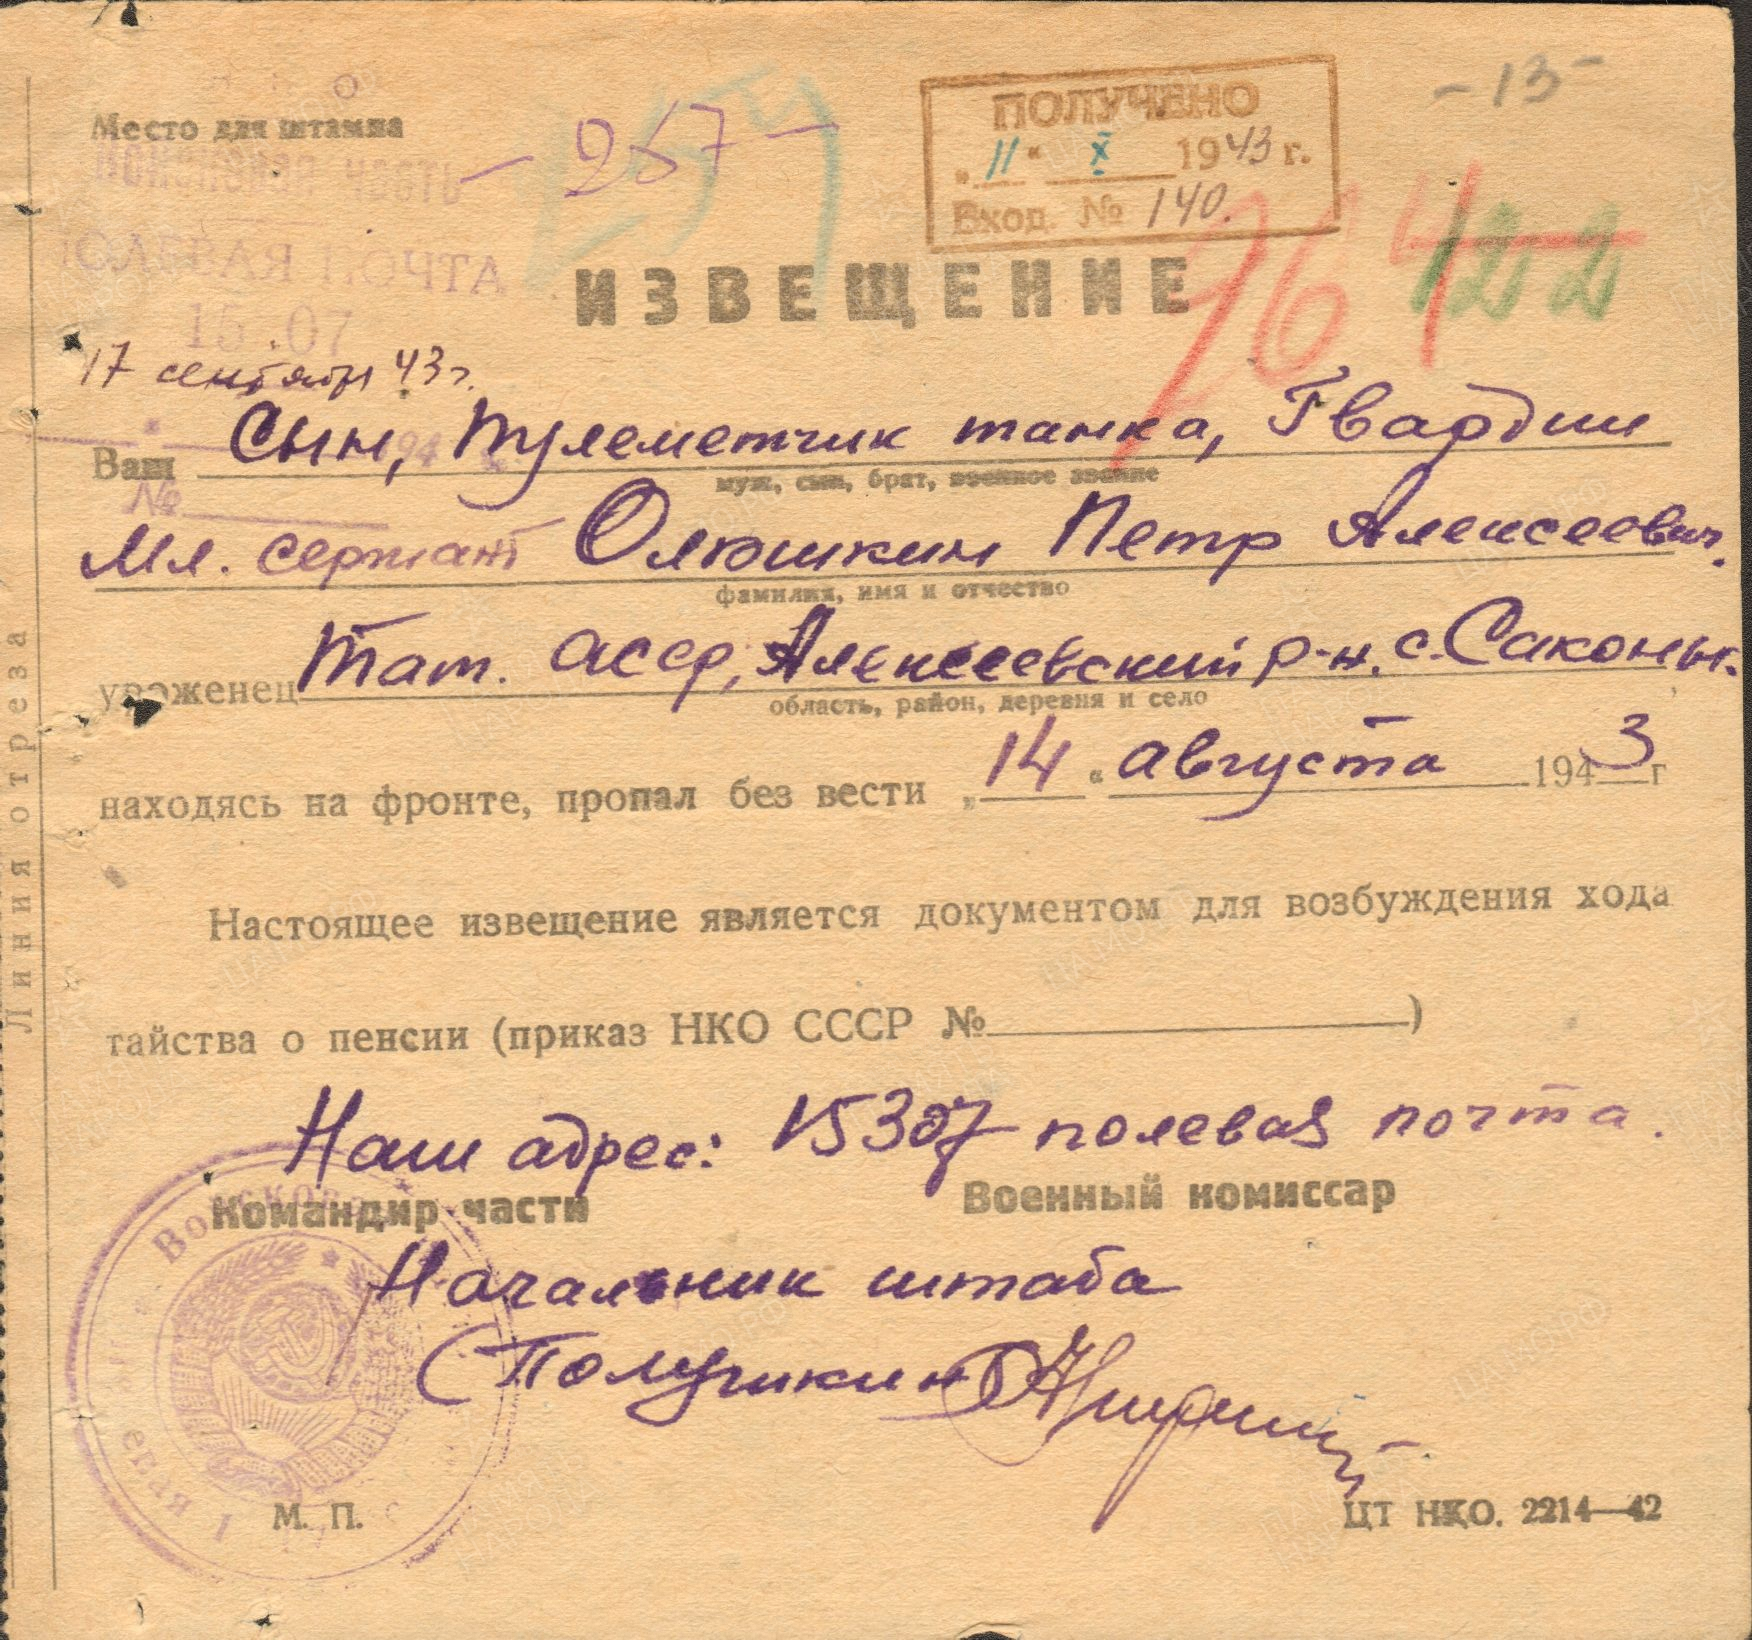 -13-
Место для штампа
- 267 -
ПОЛУЧЕНО
„11“ X 1943 г.
Вход. № 140.
264
122
ПОЛЕВАЯ ПОЧТА
ИЗВЕЩЕНИЕ
17 сентября 43 г.
Ваш Сын, пулеметчик танка, Гвардии
муж, сын, брат, военное звание
№
Мл. сержант Олюшкин Петр Алексеевич.
фамилия, имя и отчество
уроженец Тат. асср, Алексеевский р-н. с. Саконы.
область, район, деревня и село
находясь на фронте, пропал без вести „14“ августа 1943 г
Настоящее извещение является документом для возбуждения хода
тайства о пенсии (приказ НКО СССР № )
Наш адрес: 15307 полевая почта.
Командир части Военный комиссар
Начальник штаба
М. П.
ЦТ НКО. 2214—42
Линия отреза